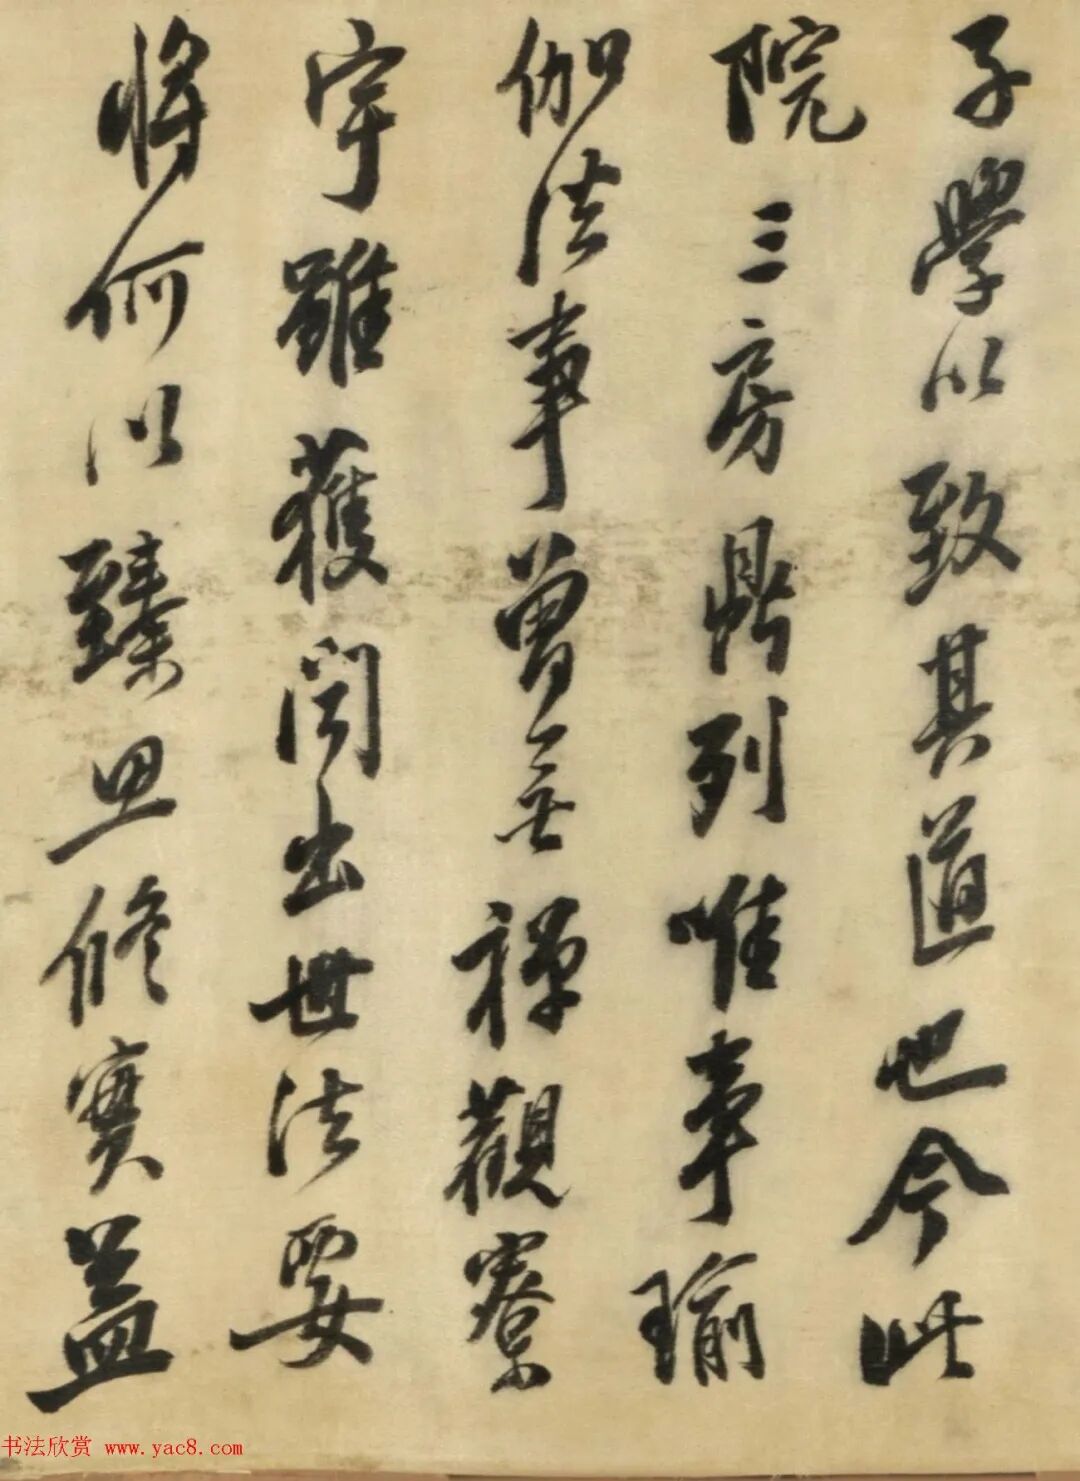 子學以致其道也今此
院三房鼎列唯事瑜
伽法事曾無禪觀寮
宇雖獲聞出世法要
將何以臻思修實蓋
书法欣赏 www.yac8.com